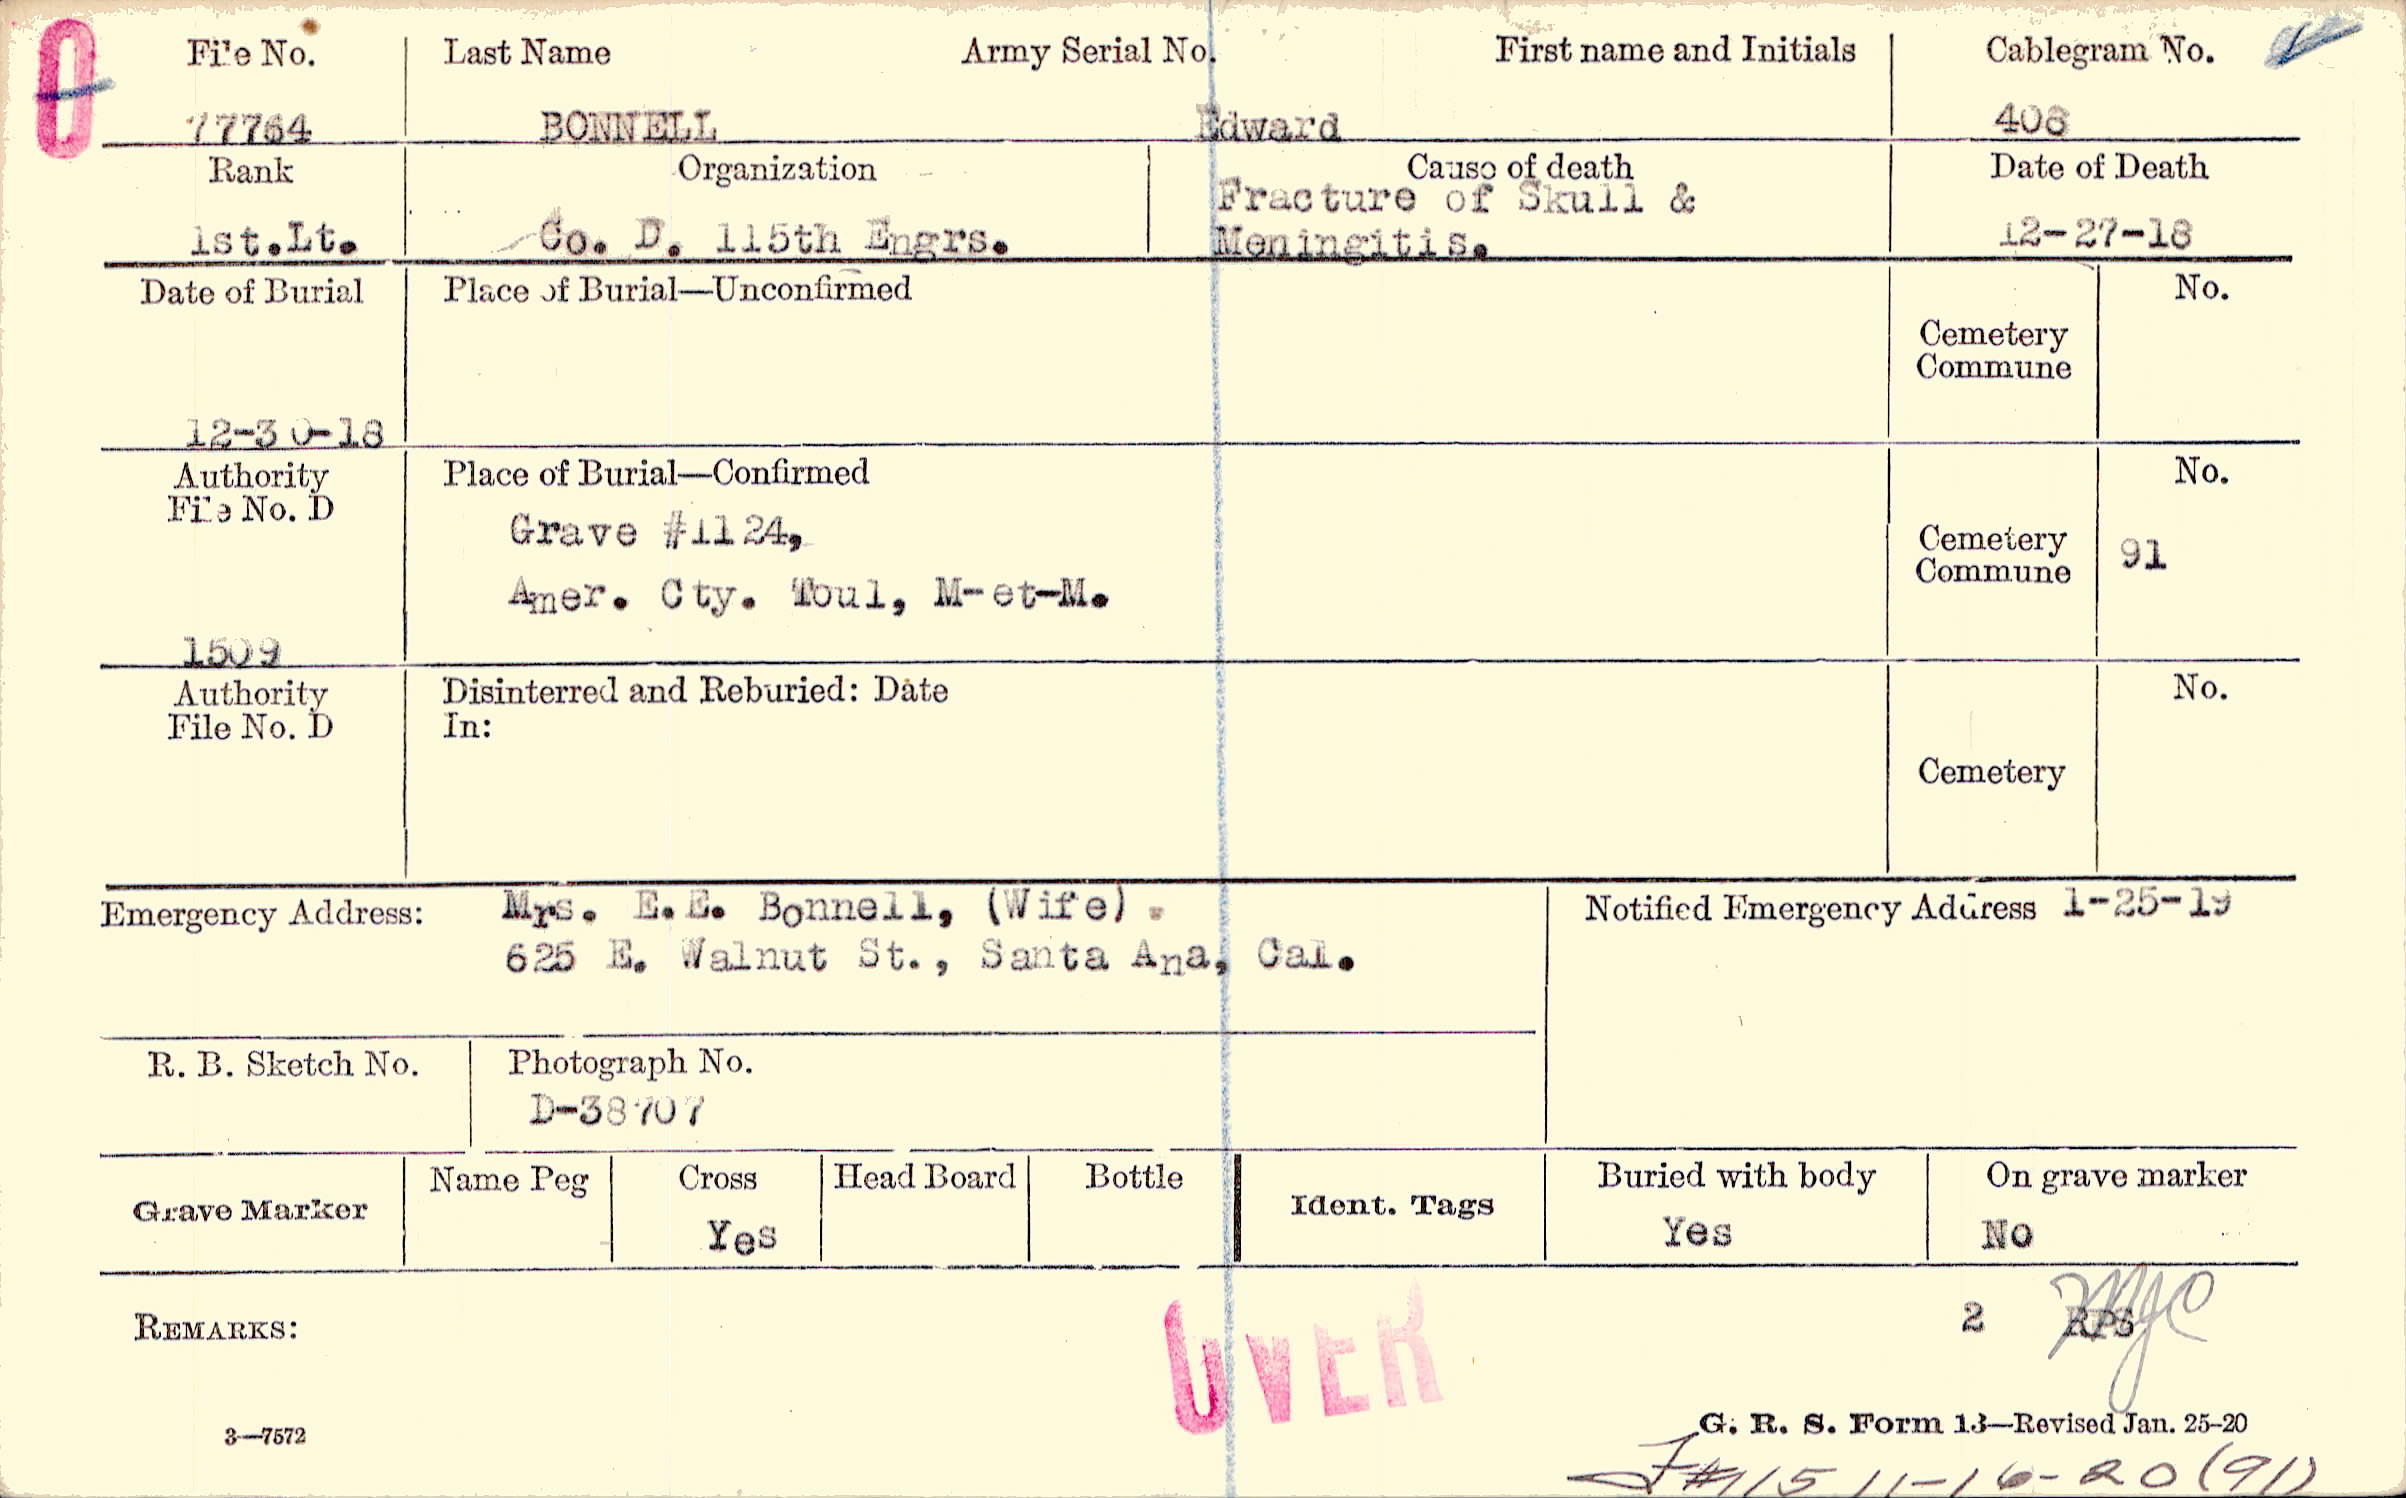 O
File No. Last Name Army Serial No. First name and Initials Cablegram No.
77764 BONNELL Edward 408
Rank Organization Cause of death Date of Death
Fracture of Skull &
1st.Lt. Co. D. 115th Engrs. Meningitis. 12-27-18
Date of Burial Place of Burial—Unconfirmed No.
Cemetery
Commune
12-30-18
Authority Place of Burial—Confirmed No.
File No. D
Grave #1124,
Cemetery
Commune 91
Amer. Cty. Toul, M-et-M.
1509
Authority Disinterred and Reburied: Date No.
File No. D In:
Cemetery
Emergency Address: Mrs. E.E. Bonnell, (Wife). Notified Emergency Address 1-25-19
625 E. Walnut St., Santa Ana, Cal.
R. B. Sketch No. Photograph No.
D-38707
Grave Marker Name Peg Cross Head Board Bottle Ident. Tags Buried with body On grave marker
Yes Yes No
REMARKS: 2 RPS
OVER
3—7572 G. R. S. Form 13—Revised Jan. 25-20
#115 11-16-20 (91)